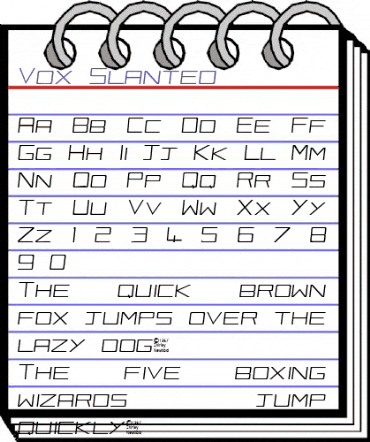 Vox Slanted
Aa Bb Cc Dd Ee Ff
Gg Hh Ii Jj Kk Ll Mm
Nn Oo Pp Qq Rr Ss
Tt Uu Vv Ww Xx Yy
Zz 1 2 3 4 5 6 7 8
9 0
The quick brown
fox jumps over the
lazy dog
The five boxing
wizards jump
quickly